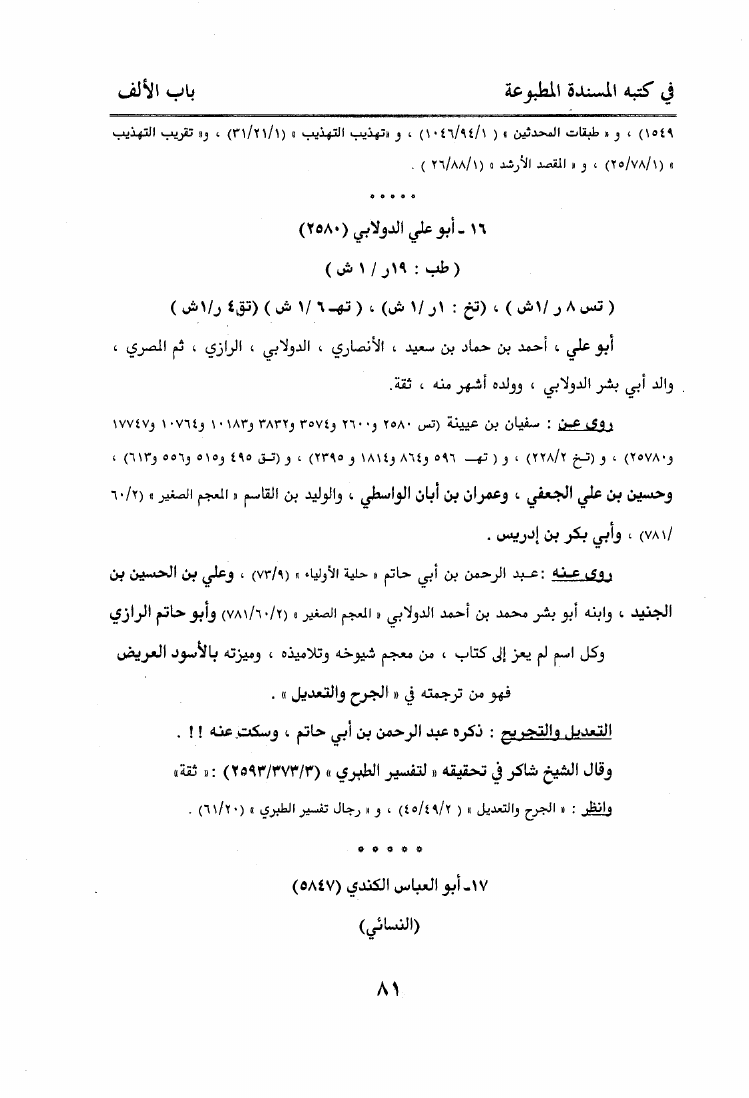 في كتبه المسندة المطبوعة باب الألف
١٥٤٩) ، و « طبقات المحدثين » ( ١٠٤٦/٩٤/١) ، و «تهذيب التهذيب » (٣١/٢١/١) ، و« تقريب التهذيب
» (٢٥/٧٨/١) ، و « المقصد الأرشد » (٢٦/٨٨/١ ) .
*****
١٦ ـ أبو علي الدولابي (٢٥٨٠)
( طب : ١٩ر / ١ ش )
( تس ٨ ر /١ش ) ، (تخ : ١ر /١ ش) ، ( تهـ ٦ /١ ش ) (تق٤ ر/١ش )
أبو علي ، أحمد بن حماد بن سعيد ، الأنصاري ، الدولابي ، الرازي ، ثم المصري ،
والد أبي بشر الدولابي ، وولده أشهر منه ، ثقة.
روى عـن : سفيان بن عيينة (تس ٢٥٨٠ و٢٦٠٠ و٣٥٧٤ و٣٨٣٢ و١٠١٨٣ و١٠٧٦٤ و١٧٧٤٧
و٢٥٧٨٠) ، و (تخ ٢٢٨/٢) ، و ( تهـ ٥٩٦ و٨٦٤ و١٨١٤ و ٢٣٩٥) ، و (تق ٤٩٥ و٥١٥ و٥٥٦ و٦١٣) ،
وحسين بن علي الجعفي ، وعمران بن أبان الواسطي ، والوليد بن القاسم « المعجم الصغير » (٦٠/٢
/٧٨١) ، وأبي بكر بن إدريس .
روى عـنه :عبد الرحمن بن أبي حاتم « حلية الأولياء » (٧٣/٩) ، وعلي بن الحسين بن
الجنيد ، وابنه أبو بشر محمد بن أحمد الدولابي « المعجم الصغير » (٧٨١/٦٠/٢) وأبو حاتم الرازي
وكل اسم لم يعز إلى كتاب ، من معجم شيوخه وتلاميذه ، وميزته بالأسود العريض
فهو من ترجمته في « الجرح والتعديل » .
التعديل والتجريح : ذكره عبد الرحمن بن أبي حاتم ، وسكت عنه !! .
وقال الشيخ شاكر في تحقيقه « لتفسير الطبري » (٢٥٩٣/٣٧٣/٣) :« ثقة»
وانظر : « الجرح والتعديل » ( ٤٥/٤٩/٢) ، و « رجال تفسير الطبري » (٦١/٢٠) .
*****
١٧ـ أبو العباس الكندي (٥٨٤٧)
(النسائي)
٨١